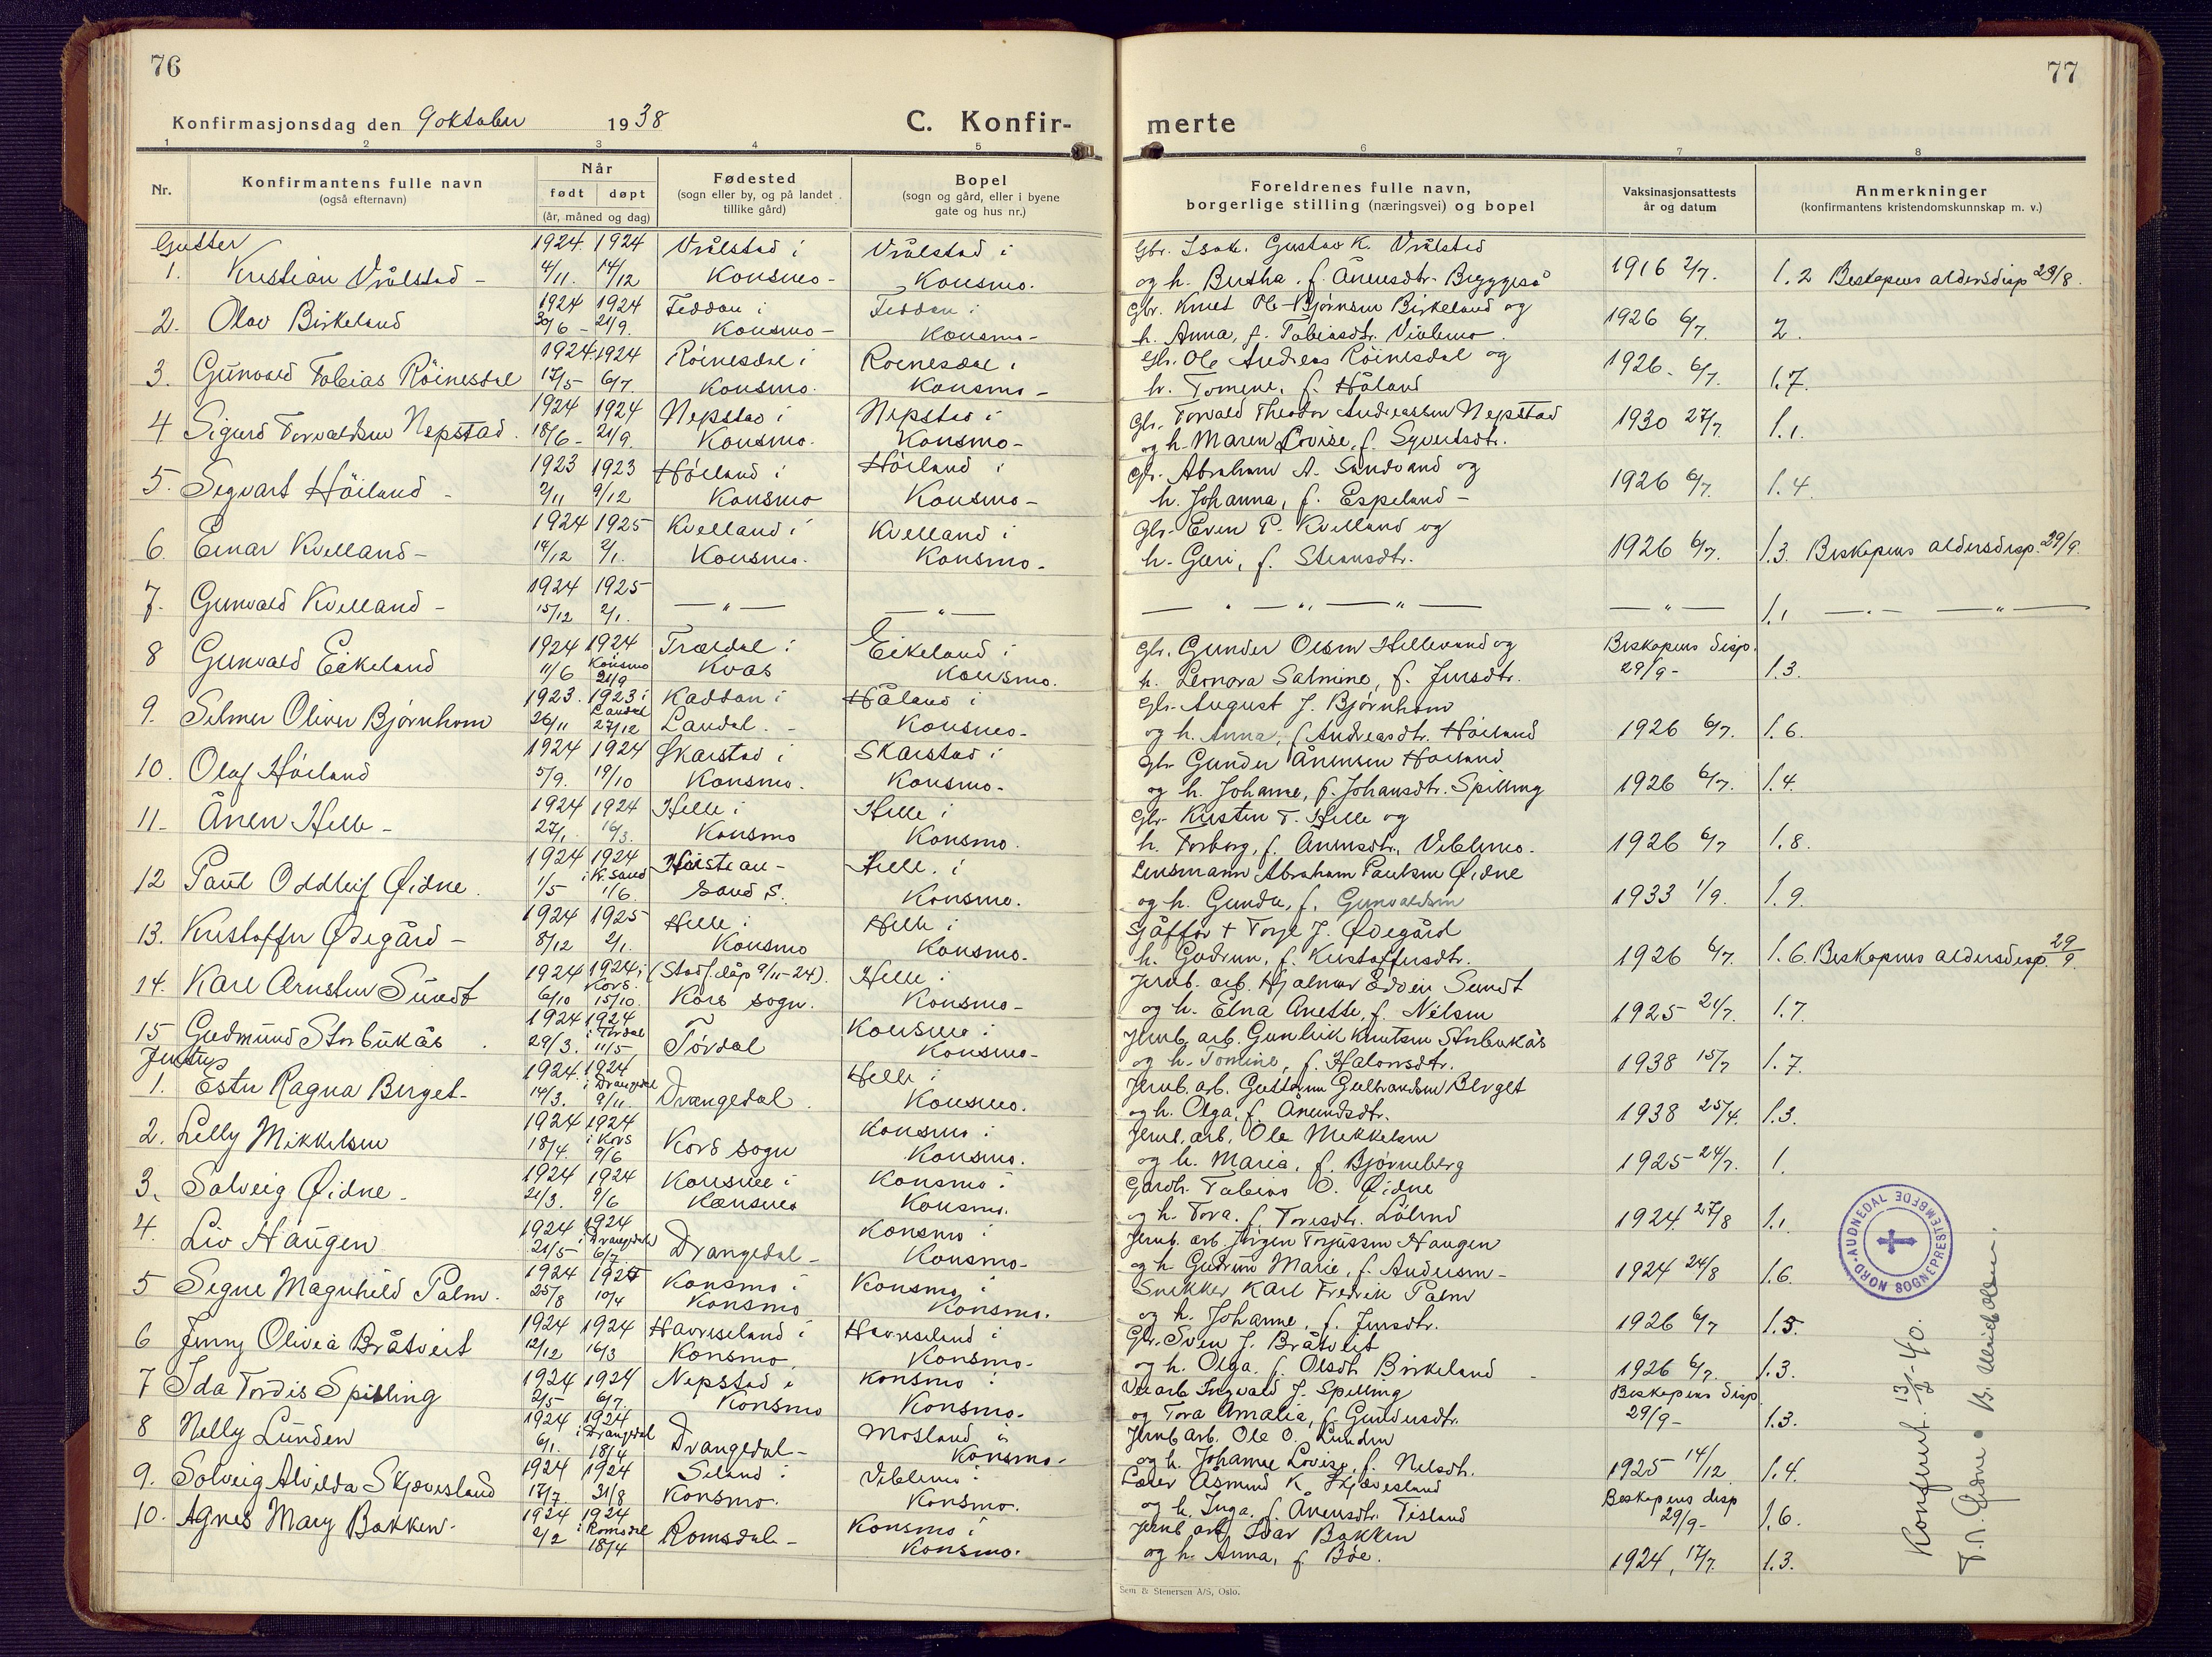 76
77
Konfirmasjonsdag den 9 oktober 1938
C. Konfir-
merte
1 2 3 4 5
6 7 8
Nr.
Konfirmantens fulle navn
(også efternavn)
Når
født døpt
(år, måned og dag)
Fødested
(sogn eller by, og på landet
tillike gård)
Bopel
(sogn og gård, eller i byene
gate og hus nr.)
Foreldrenes fulle navn,
borgerlige stilling (næringsvei) og bopel
Vaksinasjonsattests
år og datum
Anmerkninger
(konfirmantens kristendomskunnskap m. v.)
Gutter 1924. 1924 Vrålstad i Vrålstad i Gbr. Isak Gustav K. Vrålstad
1. Kristian Vrålstad - 4/11. 14/12 Konsmo - Konsmo. og h. Bertha, f. Ånensdtr. Bryggeså 1916 2/7. 1.2 Biskopens aldersdisp 29/8.
1924 1924 Feddan i Feddan i Gbr. Knut Ole Bjørnsen Birkeland og
2. Olav Birkeland 30/6 - 21/9. Konsmo - Konsmo - h. Anna, f. Tobiasdtr. Viblemo. 1926 6/7. 2.
1924. 1924 Röinesdal i Roinesdal i Gbr. Ole Andreas Röinesdal og
3. Gunvald Tobias Röinesdal 17/5 6/7 Konsmo. Konsmo - h. Tomine, f. Håland 1926 - 6/7. 1.7.
1924 1924 Nepstad i Nepstad i Gbr. Torvald Theodor Andreassen Nepstad
4 Sigurd Torvaldsen Nepstad. 18/6 - 21/9. Konsmo. Konsmo - og h. Maren Lovise, f. Syvertsdtr. 1930 27/7. 1.1.
1923 1923 Höiland i Höiland i Gbr. Abraham A. Sandvand og
5. Sigvart Höiland - 2/11 9/12 Konsmo Konsmo - h. Johanna, f. Espeland - 1926 6/7. 1.4.
1924 1925 Kvelland i Kvelland i Gbr. Even P. Kvelland og
6. Einar Kvelland - 14/12 2/1. Konsmo. Konsmo - h. Guri, f. Steansdtr. 1926 6/7. 1.3. Biskopens aldersdisp. 29/9.
1924 1925
7. Gunvald Kvelland - 15/12 2/1. — " — — " — — " — " — " — — " — 1.1 — " — — " —
1924 1924 Trældal i Eikeland i Gbr. Gunder Olsen Hillevand og Biskopens disp.
8 Gunvald Eikeland 11/6 Konsmo 21/9 Kvås Konsmo. h. Leonora Salmine, f. Jensdtr. 29/9 - 1.3.
1923. 1923 i Laudal Kaddan i Håland i Gbr. August J. Bjørnhom
9. Selmer Oliver Bjørnhom 26/11 27/12 Laudal. - Konsmo - og h. Anna, f. Andreasdtr. Höiland 1926 6/7. 1.6.
1924 1924 Skarstad i Skarstad i Gbr Gunder Ånensen Höiland
10. Olaf Höiland 5/9. 19/10 Konsmo. Konsmo - og h. Johanne, f. Johansdtr. Spilling 1926 6/7. 1.4.
1924 1924 Helle i Helle i Gbr. Kristen T. Helle og
11. Ånen Helle - 27/1. 16/3. Konsmo Konsmo. h. Torborg, f. Ånensdtr. Viblemo. 1926 6/7 1.8.
1924 1924 i Kr.sand Kristian- Helle. i Lensmann Abraham Paulsen Øidne
12 Paul Oddleif Øidne. 1/5 1/6 sand S. Konsmo. og h. Gunda, f. Gunvaldsen 1933 1/9. 1.9.
1924 1925 Helle i Helle i Sjåffør + Torje J. Ødegård
13. Kristoffer Ødegård - 8/12 2/1. Konsmo Konsmo. h. Gudrun, f. Kristoffersdtr. 1926 6/7. 1.6. Biskopens aldersdisp. 29/9.
1924 1924 i Kors. (Stadf. dåp 9/11-24). Helle i Jernb. arb. Hjalmar Edvin Sundt
14. Karl Arnsten Sundt 6/10 15/10. Kors sogn. Konsmo - og h. Elna Anette, f. Nilsen 1925 21/7. 1.7.
1924 1924 i Tördal Konsmo i Jernb. arb. Gunleik Knutsen Storbukås
15 Gudmund Storbukås. 29/3. 11/5 Tördal Konsmo - og h. Tomine, f. Halvorsdtr. 1938 15/7 1.7.
Jenter 1924. 1924 i Drangedal Helle i Jernb. arb. Guttorm Gulbrandsen Berget
1. Ester Ragna Berget - 14/3. 9/11 Drangedal. Konsmo. og h. Olga, f. Ånundsdtr. 1938 25/4. 1.3.
1924 1924 i Kors Konsmo i Jernb. arb. Ole Mikkelsen
2. Lilly Mikkelsen 18/4. 9/6 Kors sogn Konsmo. og h. Maria, f. Bjørneberg 1925 24/7. 1.
1924 1924 Konsmo i Konsmo i Gårdbr. Tobias O. Øidne
3. Solveig Øidne - 21/3. 9/6 Konsmo Konsmo. og h. Tora, f. Torisdtr. Lölend 1924 27/8 1.1
1924 1924 i Drangedal Konsmo i Jernb. arb. Jörgen Torjussen Haugen
4. Liv Haugen 21/5 6/7 Drangedal - Konsmo - og h. Gudrun Marie, f. Andersen - 1924 24/8 1.6.
1924 1925 Konsmo i Konsmo i Snekker Karl Fredrik Palm
5 Signe Magnhild Palm. 25/8 10/4 Konsmo Konsmo. og h. Johanne, f. Jensdtr. 1926 6/7 1.5.
1924 1924 Havreseland i Havreseland i Gbr. Sven J. Bråtveit
6 Jenny Olivia Bråtveit 12/12 16/3 Konsmo. Konsmo - og h. Olga, f. Olsdtr. Birkeland 1926 6/7. 1.3.
1924 1924 Nepstad i Konsmo i Veiarb Ingvald J. Spilling Biskopens disp
7 Ida Tordis Spilling 2/5 6/7. Konsmo Konsmo. og Tora Amalia, f. Gundersdtr. 29/9 - 1.3.
1924 1924 i Drangedal Mosland i Jernb arb. Ole O. Lunden
8 Nelly Lunden 6/1. 18/4 Drangedal - Konsmo - og h. Johanne Lovise, f. Nelsdtr. 1925 14/12 1.4.
1924 1924 Seland i Viblemo i Lærer Åsmund K. Skjævesland Biskopens disp
9. Solveig Alvilda Skjævesland 17/7 31/8 Konsmo. Konsmo. og h. Inga, f. Ånensdtr. Tisland 29/9 - 1.6.
1924 1924 i Romsdal Konsmo i Jernb arb. Ivar Bakken
10. Agnes Mary Bakken. 2/2 18/4 Romsdal - Konsmo. og h. Anna, f. Böe. 1924, 17/7. 1.3.
NORD-AUDNEDAL SOGNEPRESTEMBEDE
Konfrert. 13/2 - 40.
T. A. Øidne
Sem & Stenersen A/S, Oslo.